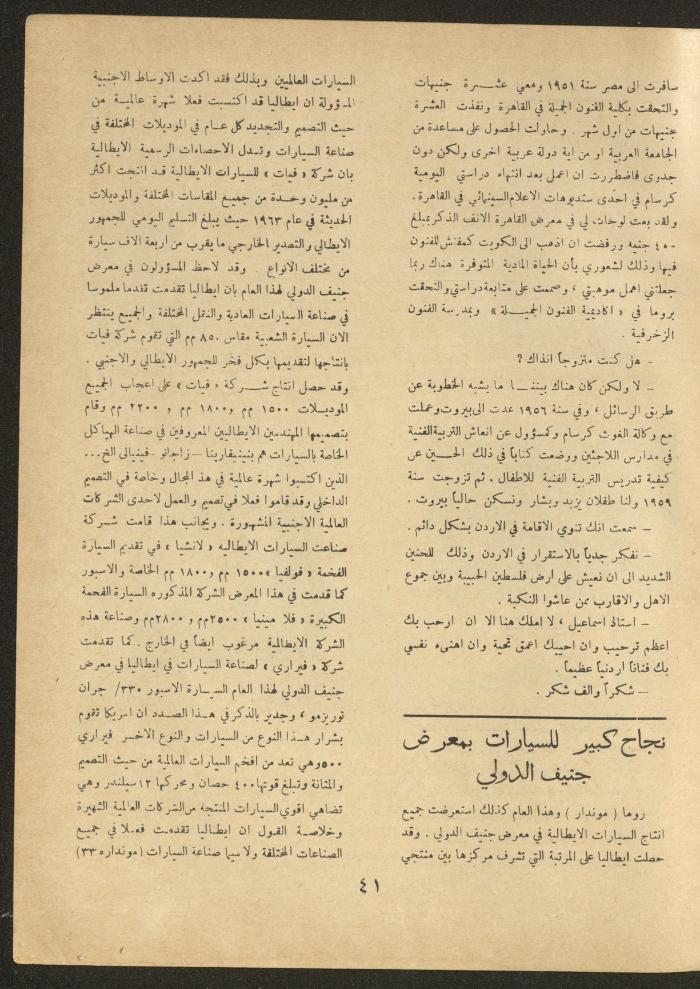 سافرت الى مصر سنة ١٩٥١ ومعي عشـــرة جنيهات
والتحقت بكلية الفنون الجميلة في القاهرة ونفذت العشرة
جنيهات من اول شهر . وحاولت الحصول على مساعدة من
الجامعة العربية او من اية دولة عربية اخرى ولكن دون
جدوى فاضطررت ان اعمل بعد انتهاء دراستي اليومية
كرسام في احدى ستديوهات الاعلام السينمائي في القاهرة.
ولقد بعت لوحات لي في معرض القاهرة الانف الذكر بمبلغ
٤٠٠ جنيه ورفضت ان اذهب الى الكويت كمفتش للفنون
فيها وذلك لشعوري بأن الحياة المادية المتوفرة هناك ربما
جعلتني اهمل موهبتي ، وصممت على متابعة دراستي والتحقت
بروما في « اكاديمية الفنون الجميـــلة » وبمدرسة الفنون
الزخرفية .
- هل كنت متزوجاً انذاك ؟
- لا ولكن كان هناك بيننـــا ما يشبه الخطوبة عن
طريق الرسائل ، وفي سنة ١٩٥٦ عدت الى بيروت وعملت
مع وكالة الغوث كرسام وكمسؤول عن انعاش التربية الفنية
في مدارس اللاجئين ووضعت كتاباً في ذلك الحـــين عن
كيفية تدريس التربية الفنية للاطفال . ثم تزوجت سنة
١٩٥٩ ولنا طفلان يزيد وبشار ونسكن حالياً بيروت .
- سمعت انك تنوي الاقامة في الاردن بشكل دائم .
- نفكر جدياً بالاستقرار في الاردن وذلك للحنين
الشديد الى ان نعيش على ارض فلسطين الحبيبة وبين جموع
الاهل والاقارب ممن عاشوا النكبة .
- استاذ اسماعيل ، لا املك هنا الا ان ارحب بك
اعظم ترحيب وان احييك اعمق تحية وان اهنىء نفسي
بك فناناً اردنياً عظيماً .
- شكراً والف شكر .
نجاح كبير للسيارات بمعرض
جنيف الدولي
روما ( موندار ) وهذا العام كذلك استعرضت جميع
انتاج السيارات الايطالية في معرض جنيف الدولي . وقد
حصلت ايطاليا على المرتبة التي تشرف مركزها بين منتجي
السيارات العالميين وبذلك فقد اكدت الاوساط الاجنبية
المسؤولة ان ايطاليا قد اكتسبت فعلا شهرة عالميـــة من
حيث التصميم والتجديد كل عـــام في الموديلات المختلفة في
صناعة السيارات وتـــدل الاحصاءات الرسمية الايطالية
بان شركة « فيات » للسيارات الايطالية قـد انتجت اكثر
من مليون وحـــدة من جميـع المقاسات المختلفة والموديلات
الحديثة في عام ١٩٦٣ حيث يبلغ التسليم اليومي للجمهور
الايطالي والتصدير الخارجي ما يقرب من اربعة الاف سيارة
من مختلف الانواع . وقد لاحظ المسؤولون في معرض
جنيف الدولي لهذا العام بان ايطاليا تقدمت تقدما ملموسا
في صناعة السيارات العادية والنقل المختلفة والجميع ينتظر
الان السيارة الشعبية مقاس ٨٥٠ م م التي تقوم شركة فيات
بانتاجها لتقديمها بكل فخر للجمهور الايطالي والاجنبي .
وقد حصل انتاج شـــركة « فيات » على اعجاب الجميـع
الموديـــلات ١٥٠٠ م م و١٨٠٠ م م و ٢٢٠٠ م م وقام
بتصميمها المهندسين الايطاليين المعروفين في صناعة الهياكل
الخاصة بالسيارات هم بنينيفارينا - زاجاتو - فينيالى الخ...
الذين اكتسبوا شهرة عالمية في هذا المجال وخاصة في التصميم
الداخلي وقد قاموا فعلا في تصميم والعمل لاحدى الشركات
العالمية الاجنبية المشهورة . وبجانب هذا قامت شـــركة
صناعت السيارات الايطاليه « لانشيا » في تقديم السيارة
الفخمة « فولفيا » ١٥٠٠ م م و١٨٠٠ م م الخاصة والاسبور
كما قدمت في هذا المعرض الشركة المذكوره السيارة الفخمة
الكبيرة « فلا مينيا » ٢٥٠٠م م و٢٨٠٠م م وصناعة هذه
الشركة الايطالية مرغوب ايضاً في الخارج . كما تقدمت
شركة « فيراري » لصناعة السيارات في ايطاليا في معرض
جنيف الدولي لهذا العام السيـــارة الاسبور ٣٣٠/ جران
توريزمو ، وجدير بالذكر في هـــذا الصـدد ان امريكا تقوم
بشراء هـــذا النوع من السيارات والنوع الاخـــر فيراري
٥٠٠ وهي تعد من افخم السيارات العالمية من حيث التصميم
والمتانة وتبلغ قوتها ٤٠٠ حصان ومحركها ١٢ سيلندر وهي
تضاهي اقوي السيارات المنتجه من الشركات العالمية الشهيرة
وخلاصـة القول ان ايطاليا تقدمت فعـــلا في جميـع
الصناعات المختلفة ولا سيما صناعة السيارات (مونداره ٣٣)
٤١